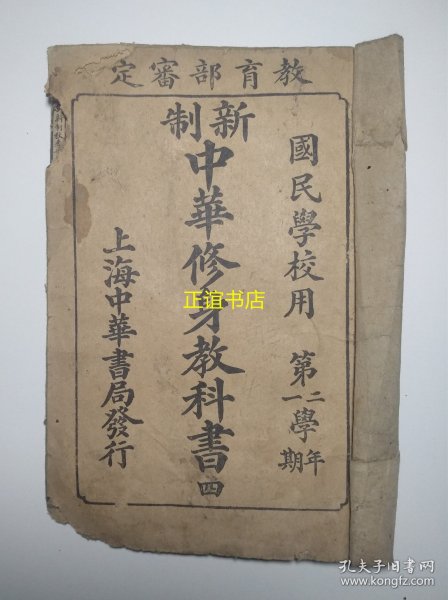 教育部審定
國民學校用 第二學年第一學期
新制
中華修身教科書 四
上海中華書局發行
正谊书店
孔夫子旧书网